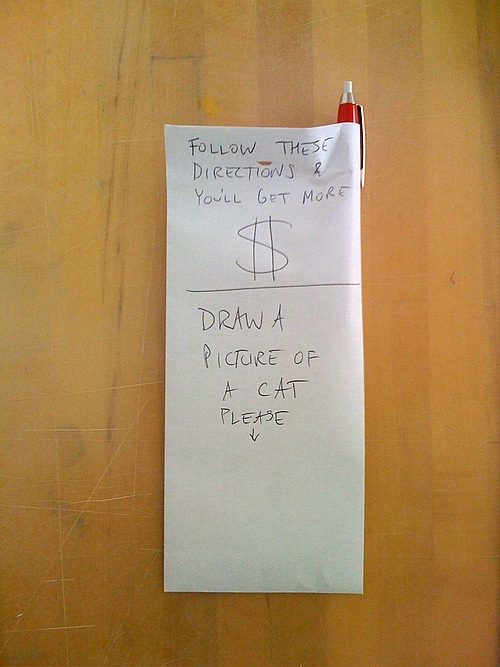 FOLLOW THESE
DIRECTIONS &
YOU'LL GET MORE
$
DRAW A
PICTURE OF
A CAT
PLEASE
↓